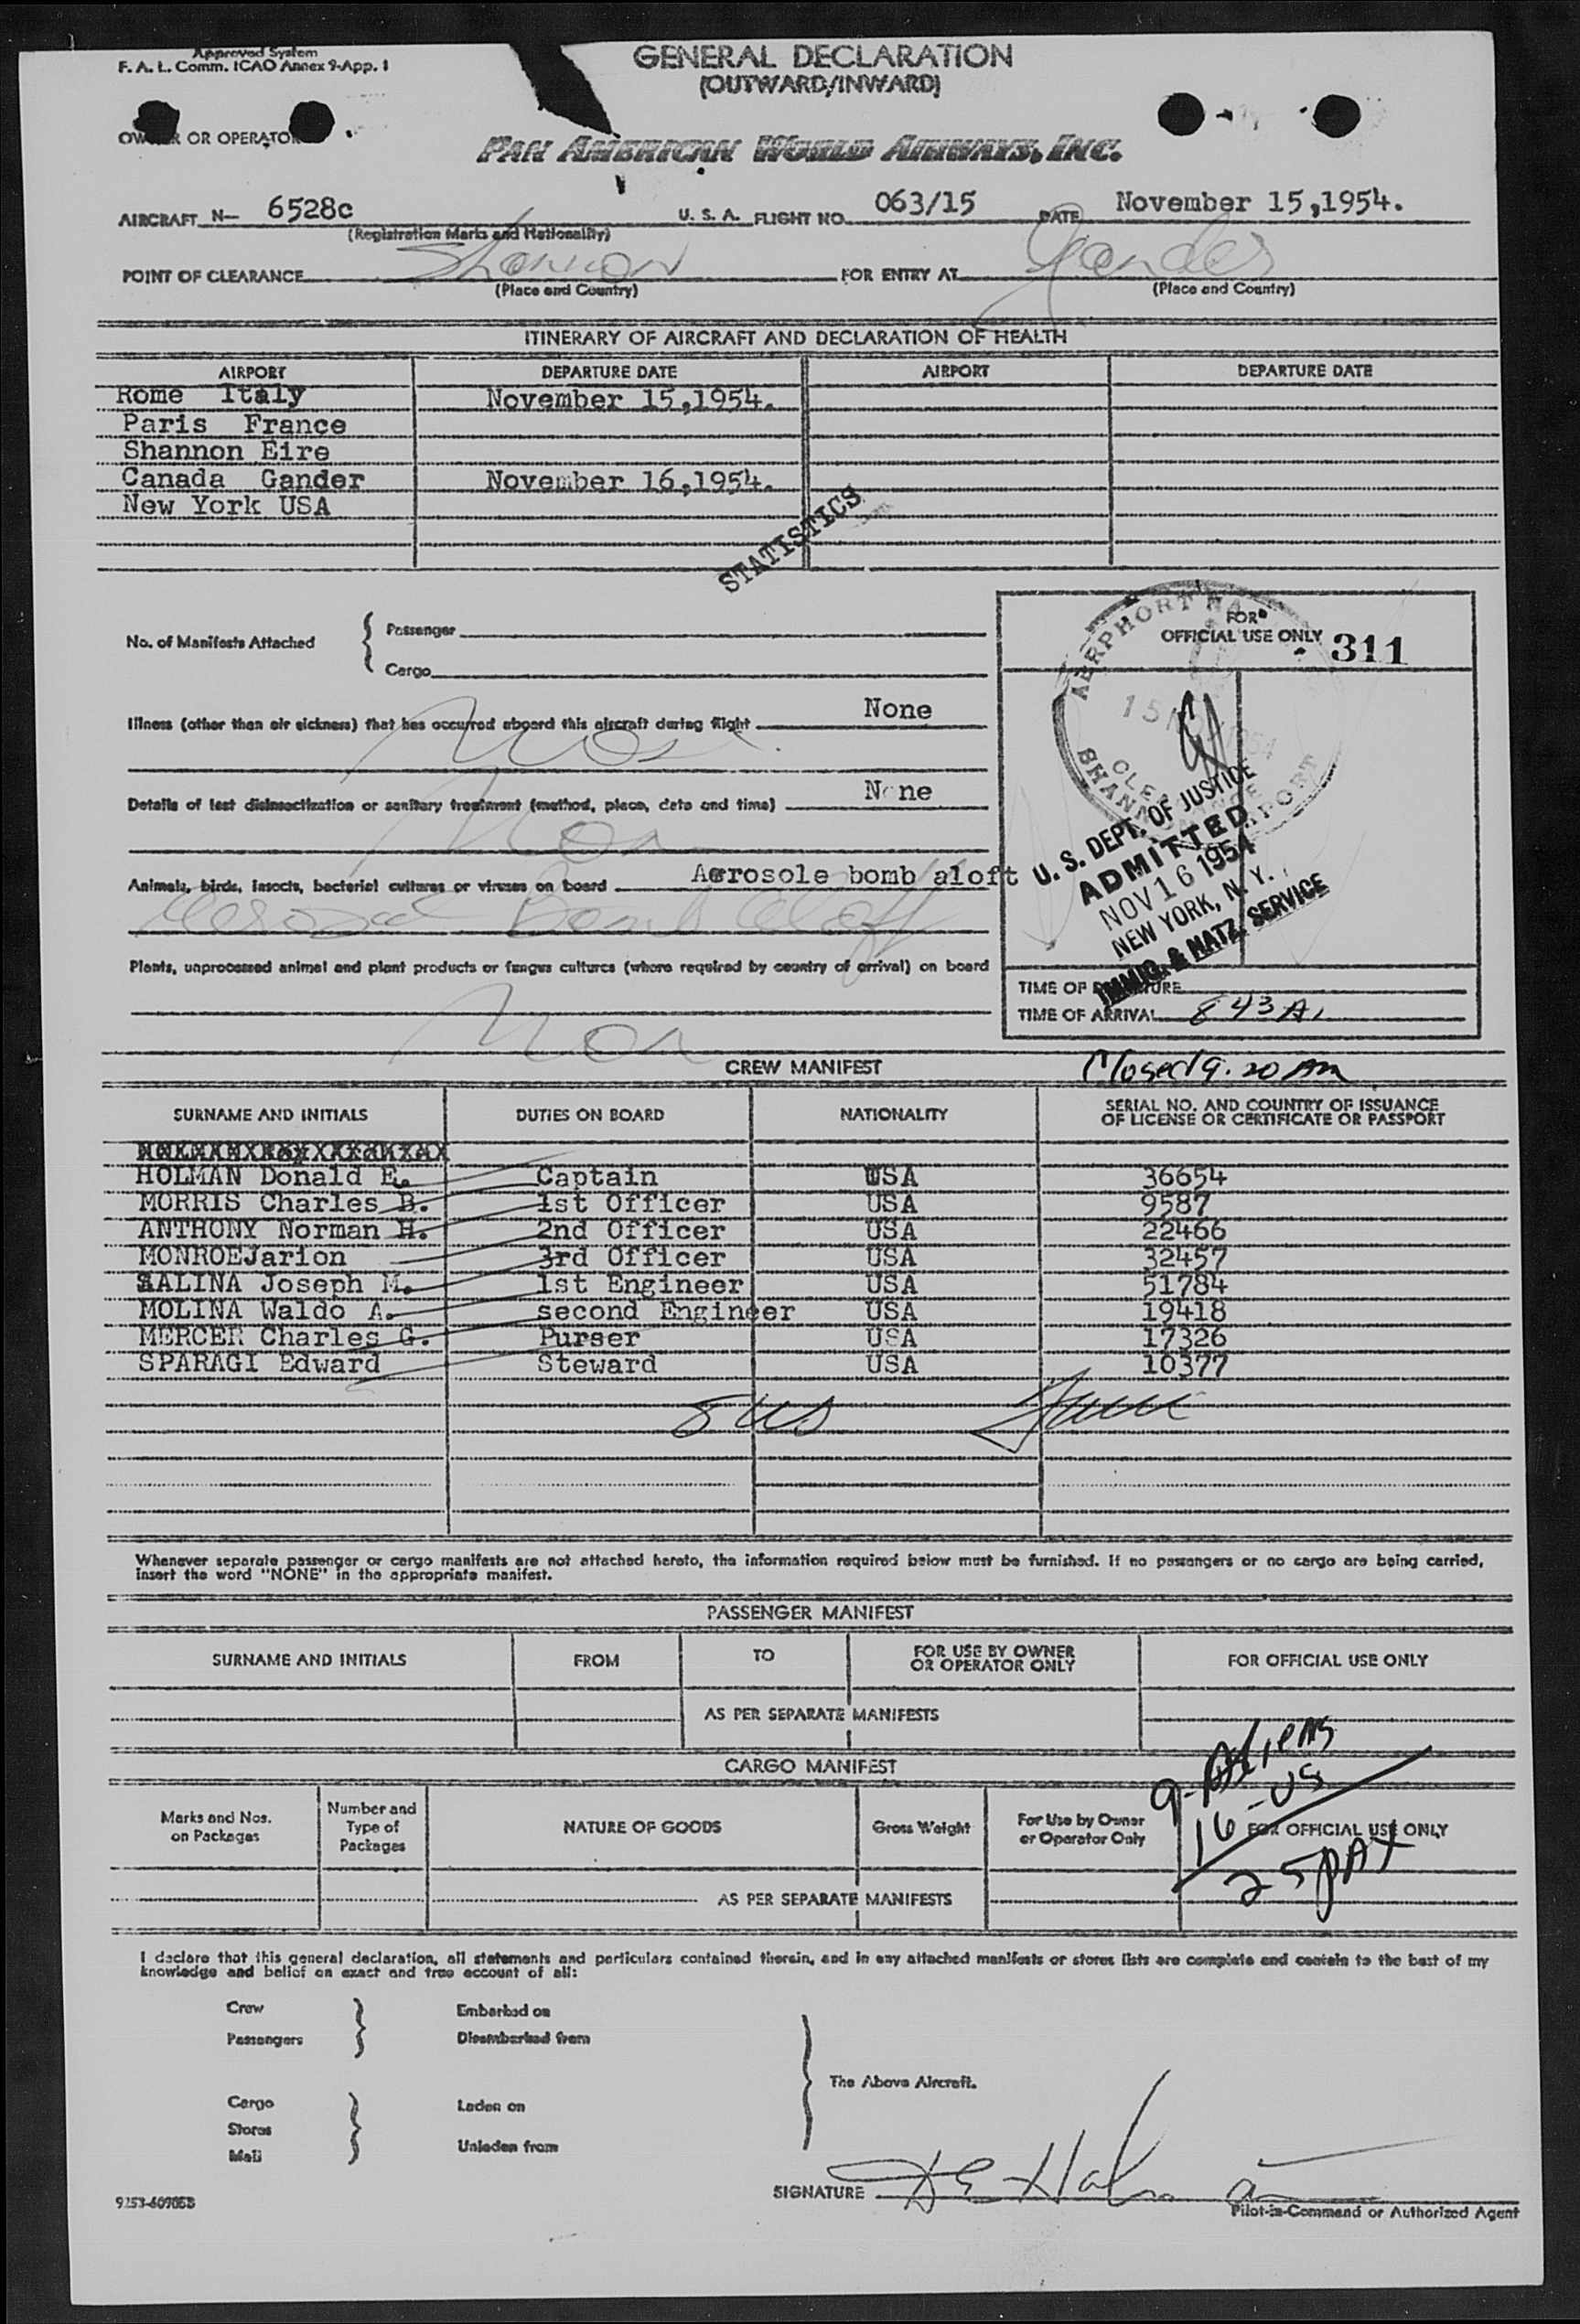 Approved System
F. A. L. Comm. ICAO Annex 9-App. 1
GENERAL DECLARATION
(OUTWARD/INWARD)
OWNER OR OPERATOR
PAN AMERICAN WORLD AIRWAYS, INC.
AIRCRAFT N- 6528c U. S. A. FLIGHT NO. 063/15 DATE November 15,1954.
(Registration Marks and Nationality)
POINT OF CLEARANCE Shannon FOR ENTRY AT Gander
(Place and Country) (Place and Country)
ITINERARY OF AIRCRAFT AND DECLARATION OF HEALTH
AIRPORT DEPARTURE DATE AIRPORT DEPARTURE DATE
Rome Italy November 15,1954.
Paris France
Shannon Eire
Canada Gander November 16,1954.
New York USA
STATISTICS
No. of Manifests Attached { Passenger
Cargo
FOR
OFFICIAL USE ONLY 311
Illness (other than air sickness) that has occurred aboard this aircraft during flight None
Non
Details of last disinsectization or sanitary treatment (method, place, date and time) N ne
Non
Animals, birds, insects, bacterial cultures or viruses on board Aerosole bomb aloft
Aerosol Bomb Aloft
Plants, unprocessed animal and plant products or fungus cultures (where required by country of arrival) on board
Non
AERPHORT NA
15
1954
SHANNON AIRPORT
U. S. DEPT. OF JUSTICE
ADMITTED
NOV 16 1954
NEW YORK, N. Y.
IMMIG. & NATZ. SERVICE
TIME OF DEPARTURE
TIME OF ARRIVAL 843 A.
CREW MANIFEST
Closed 9.20 Am
SURNAME AND INITIALS DUTIES ON BOARD NATIONALITY SERIAL NO. AND COUNTRY OF ISSUANCE OF LICENSE OR CERTIFICATE OR PASSPORT
HOLMAN Donald E. Captain USA 36654
MORRIS Charles B. 1st Officer USA 9587
ANTHONY Norman H. 2nd Officer USA 22466
MONROEJarion 3rd Officer USA 32457
SALINA Joseph M. 1st Engineer USA 51784
MOLINA Waldo A. second Engineer USA 19418
MERCER Charles G. Purser USA 17326
SPARAGI Edward Steward USA 10377
8 US
Whenever separate passenger or cargo manifests are not attached hereto, the information required below must be furnished. If no passengers or no cargo are being carried,
insert the word "NONE" in the appropriate manifest.
PASSENGER MANIFEST
SURNAME AND INITIALS FROM TO FOR USE BY OWNER OR OPERATOR ONLY FOR OFFICIAL USE ONLY
AS PER SEPARATE MANIFESTS
CARGO MANIFEST
9-Aliens
16-US
25 PAX
Marks and Nos. on Packages Number and Type of Packages NATURE OF GOODS Gross Weight For Use by Owner or Operator Only FOR OFFICIAL USE ONLY
AS PER SEPARATE MANIFESTS
I declare that this general declaration, all statements and particulars contained therein, and in any attached manifests or stores lists are complete and contain to the best of my
knowledge and belief an exact and true account of all:
Crew Embarked on
Passengers Disembarked from
The Above Aircraft.
Cargo Laden on
Stores
Mail Unladen from
SIGNATURE D E Holman
Pilot-in-Command or Authorized Agent